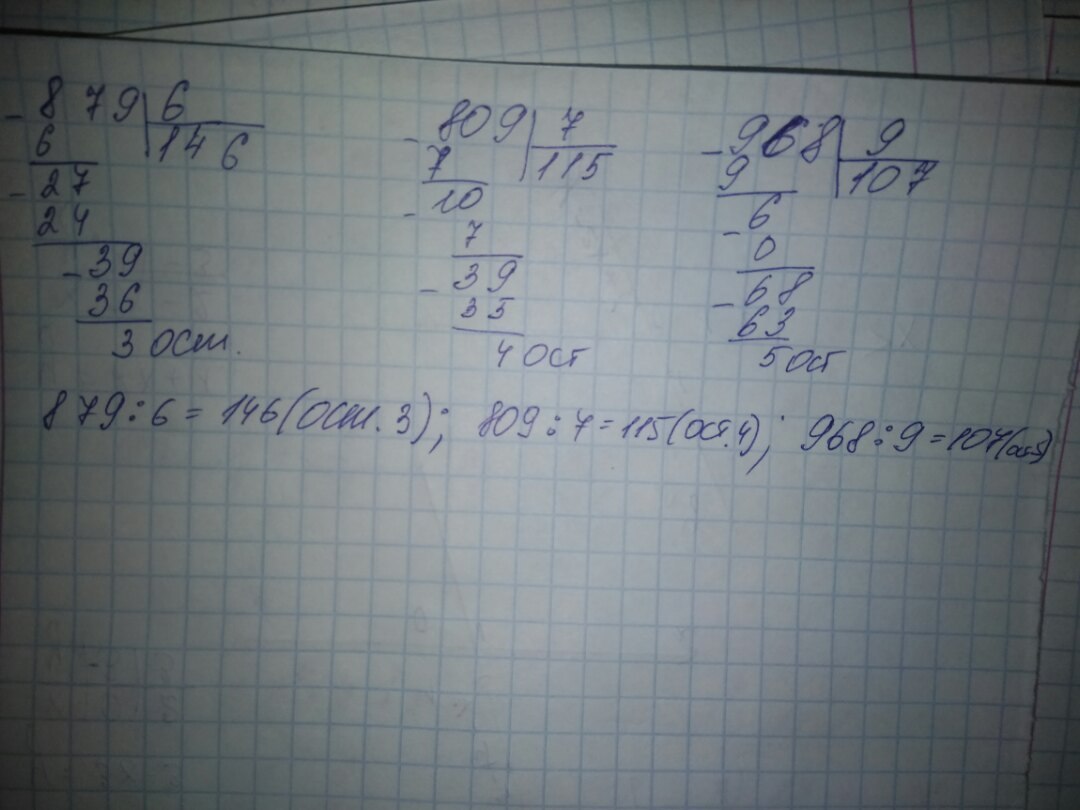 - 879 | 6    - 809 | 7    - 968 | 9
6   | 146    7 | 115    9 | 107
- 27    - 10    - 6
24    7    0
- 39    - 39    - 68
36    35    63
3 ост.    4 ост    5 ост
879:6=146(ост. 3); 809:7=115(ост.4); 968:9=107(ост5)